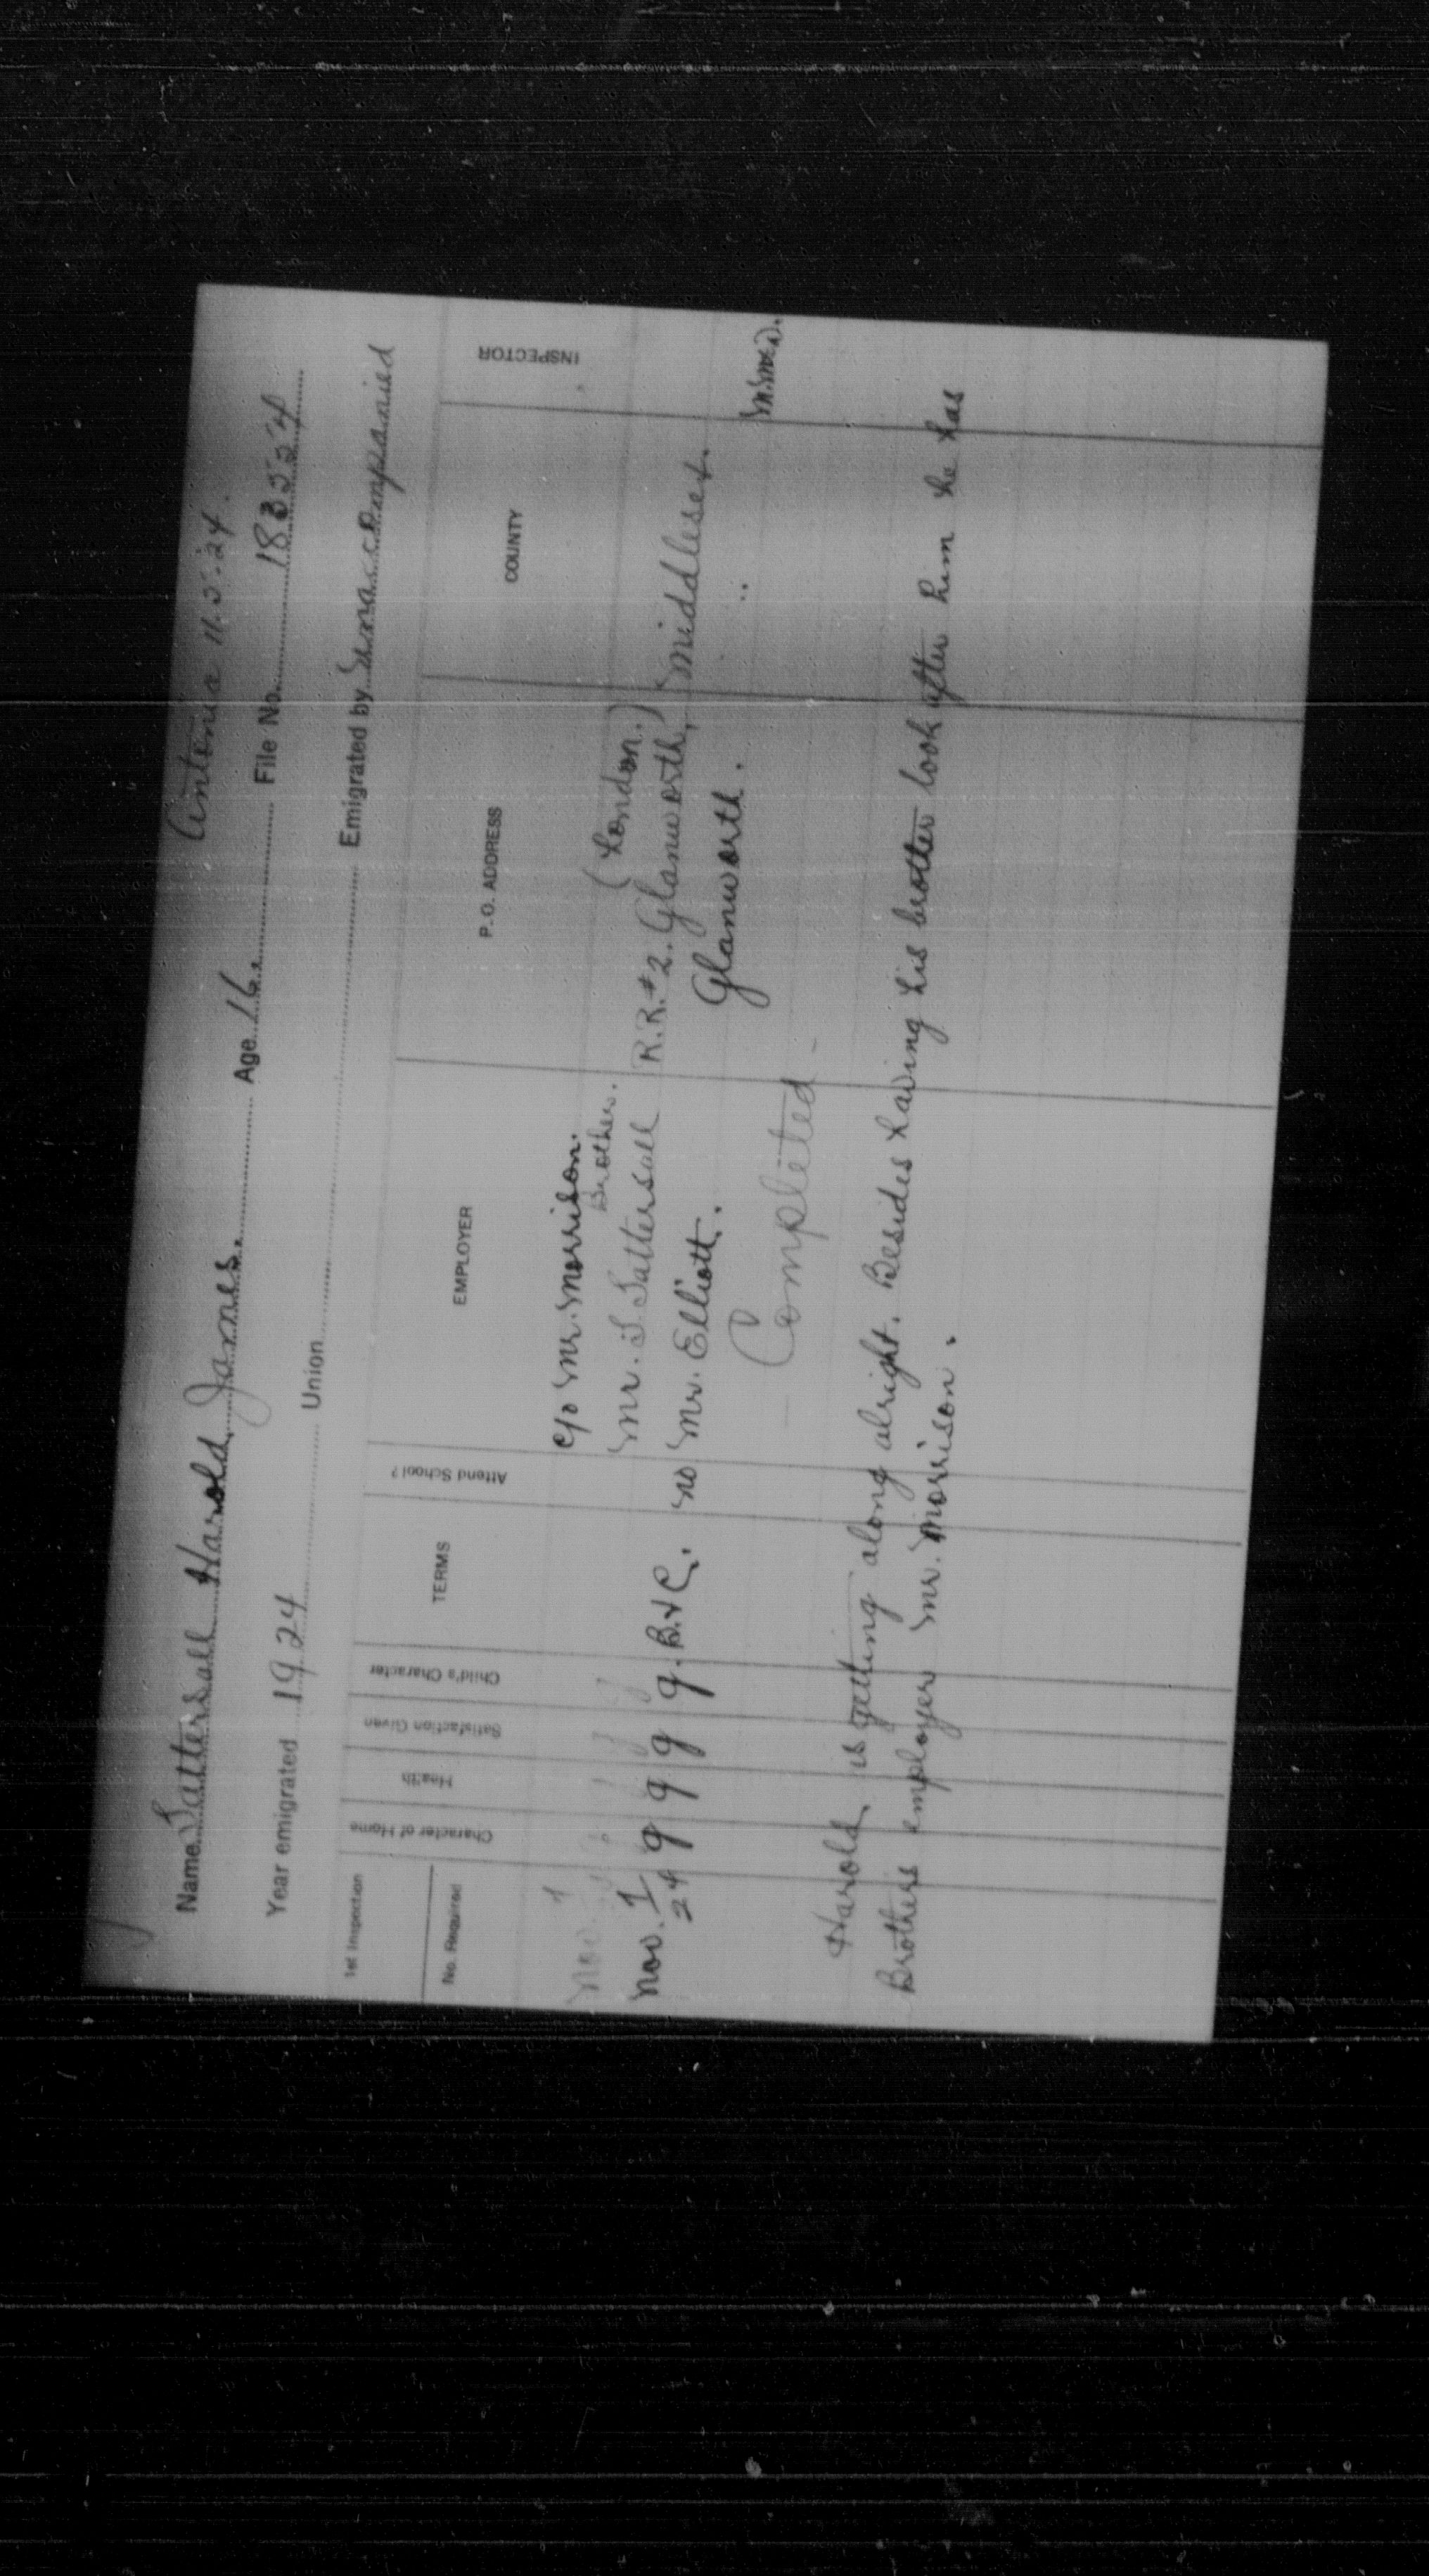 Antonia 11.5.24.
Name Tattersall Harold James. Age 16. File No. 183554
Year emigrated 1924 Union Emigrated by Unaccompanied
1st Inspection
No. Required
Character of Home Health Satisfaction Given Child's Character TERMS Attend School? EMPLOYER P. O. ADDRESS COUNTY INSPECTOR
c/o Mr. Morrison. (London.)
Brothers.
Mr. T. Tattersall R.R.#2. Glanworth, Middlesex.
Nov. 1/24 g g g g. B.+C. no Mr. Elliott. Glanworth. " M.M.D.
— Completed —
Harold is getting along alright. Besides having his brother look after him he has
Brothers employer Mr. Morrison.